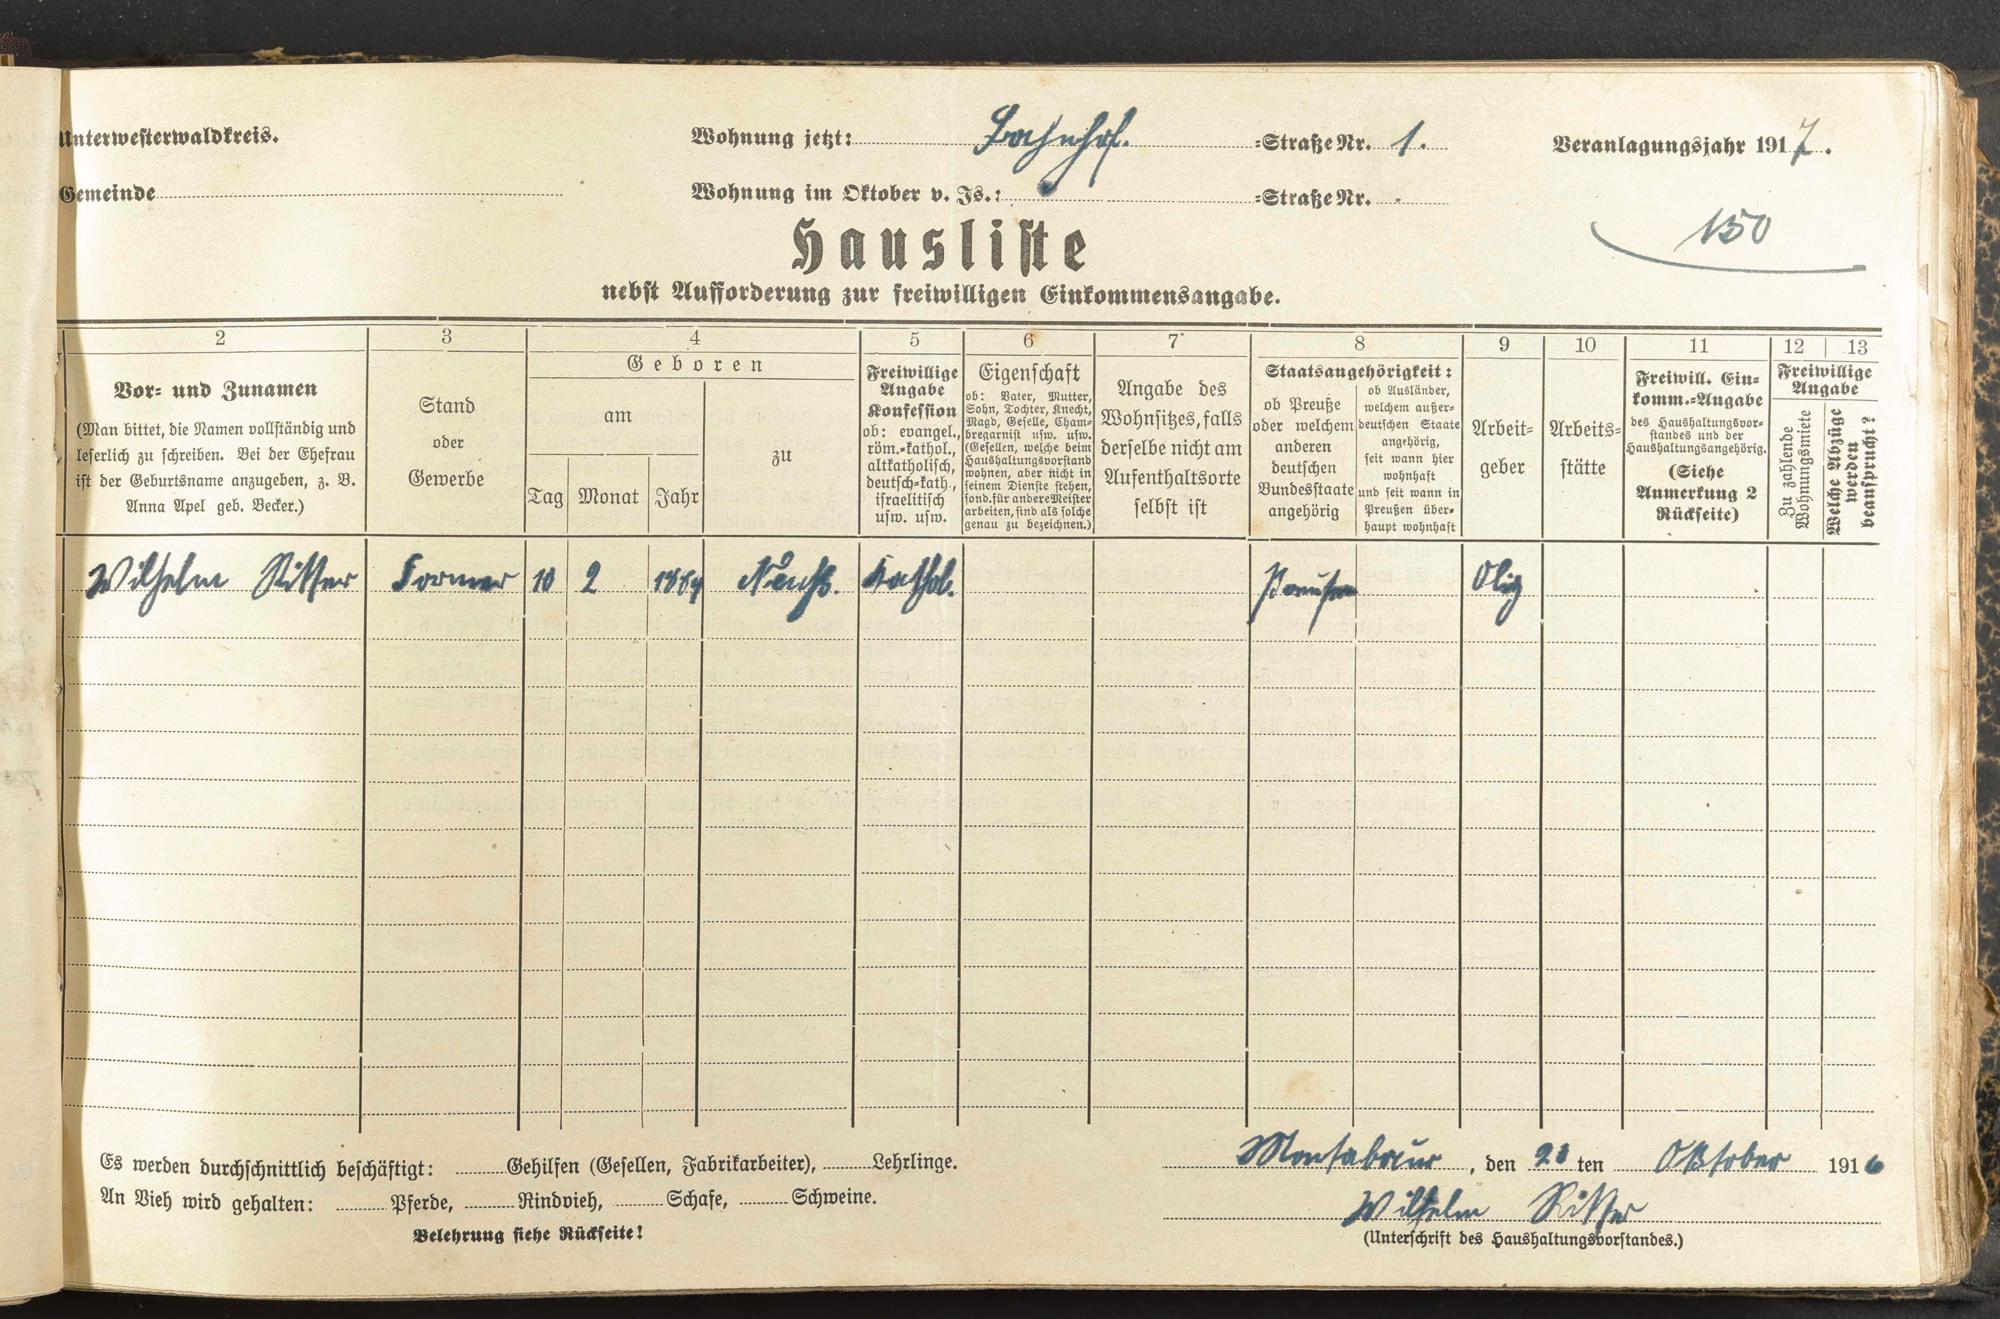 Unterwesterwaldkreis.
Wohnung jetzt: Bahnhof. =Straße Nr. 1.
Veranlagungsjahr 1917.
Gemeinde
Wohnung im Oktober v. Js.: =Straße Nr.
150
Hausliste
nebst Aufforderung zur freiwilligen Einkommensangabe.
2 3 4 5 6 7 8 9 10 11 12 13
Vor- und Zunamen
(Man bittet, die Namen vollständig und
leserlich zu schreiben. Bei der Ehefrau
ist der Geburtsname anzugeben, z. B.
Anna Apel geb. Becker.)
Stand
oder
Gewerbe
Geboren
am
Tag Monat Jahr
zu
Freiwillige
Angabe
Konfession
ob: evangel.,
röm.-kathol.,
altkatholisch,
deutsch-kath.,
israelitisch
usw. usw.
Eigenschaft
ob: Vater, Mutter,
Sohn, Tochter, Knecht,
Magd, Geselle, Cham-
bregarnist usw. usw.
(Gesellen, welche beim
Haushaltungsvorstand
wohnen, aber nicht in
seinem Dienste stehen,
sond. für andere Meister
arbeiten, sind als solche
genau zu bezeichnen.)
Angabe des
Wohnsitzes, falls
derselbe nicht am
Aufenthaltsorte
selbst ist
Staatsangehörigkeit:
ob Preuße
oder welchem
anderen
deutschen
Bundesstaate
angehörig
ob Ausländer,
welchem außer-
deutschen Staate
angehörig,
seit wann hier
wohnhaft
und seit wann in
Preußen über-
haupt wohnhaft
Arbeit-
geber
Arbeits-
stätte
Freiwill. Ein-
komm.-Angabe
des Haushaltungsvor-
standes und der
Haushaltungsangehörig.
(Siehe
Anmerkung 2
Rückseite)
Freiwillige
Angabe
Zu zahlende
Wohnungsmiete
Welche Abzüge
werden
beansprucht?
Wilhelm Ritter Former 10 2 1889 Kathol. Preußen Olig
Es werden durchschnittlich beschäftigt: Gehilfen (Gesellen, Fabrikarbeiter), Lehrlinge.
An Vieh wird gehalten: Pferde, Rindvieh, Schafe, Schweine.
Belehrung siehe Rückseite!
Montabaur, den 20 ten Oktober 1916
Wilhelm Ritter
(Unterschrift des Haushaltungsvorstandes.)